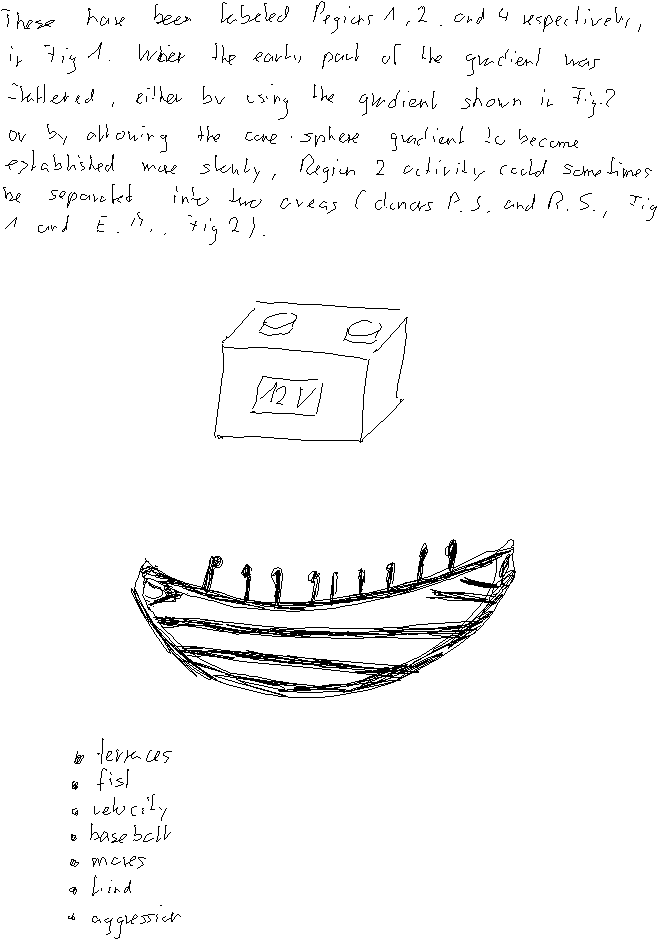 These have been labeled Regions 1, 2, and 4 respectively,
in Fig 1. When the early part of the gradient was
flattered, either by using the gradient shown in Fig. 2
or by allowing the cone-sphere gradient to become
established more slowly, Region 2 activity could sometimes
be separated into two areas (donors P.S. and R.S., Fig
1 and E. Fig 2).
12 V
terraces
fist
velocity
baseball
moves
hind
aggression